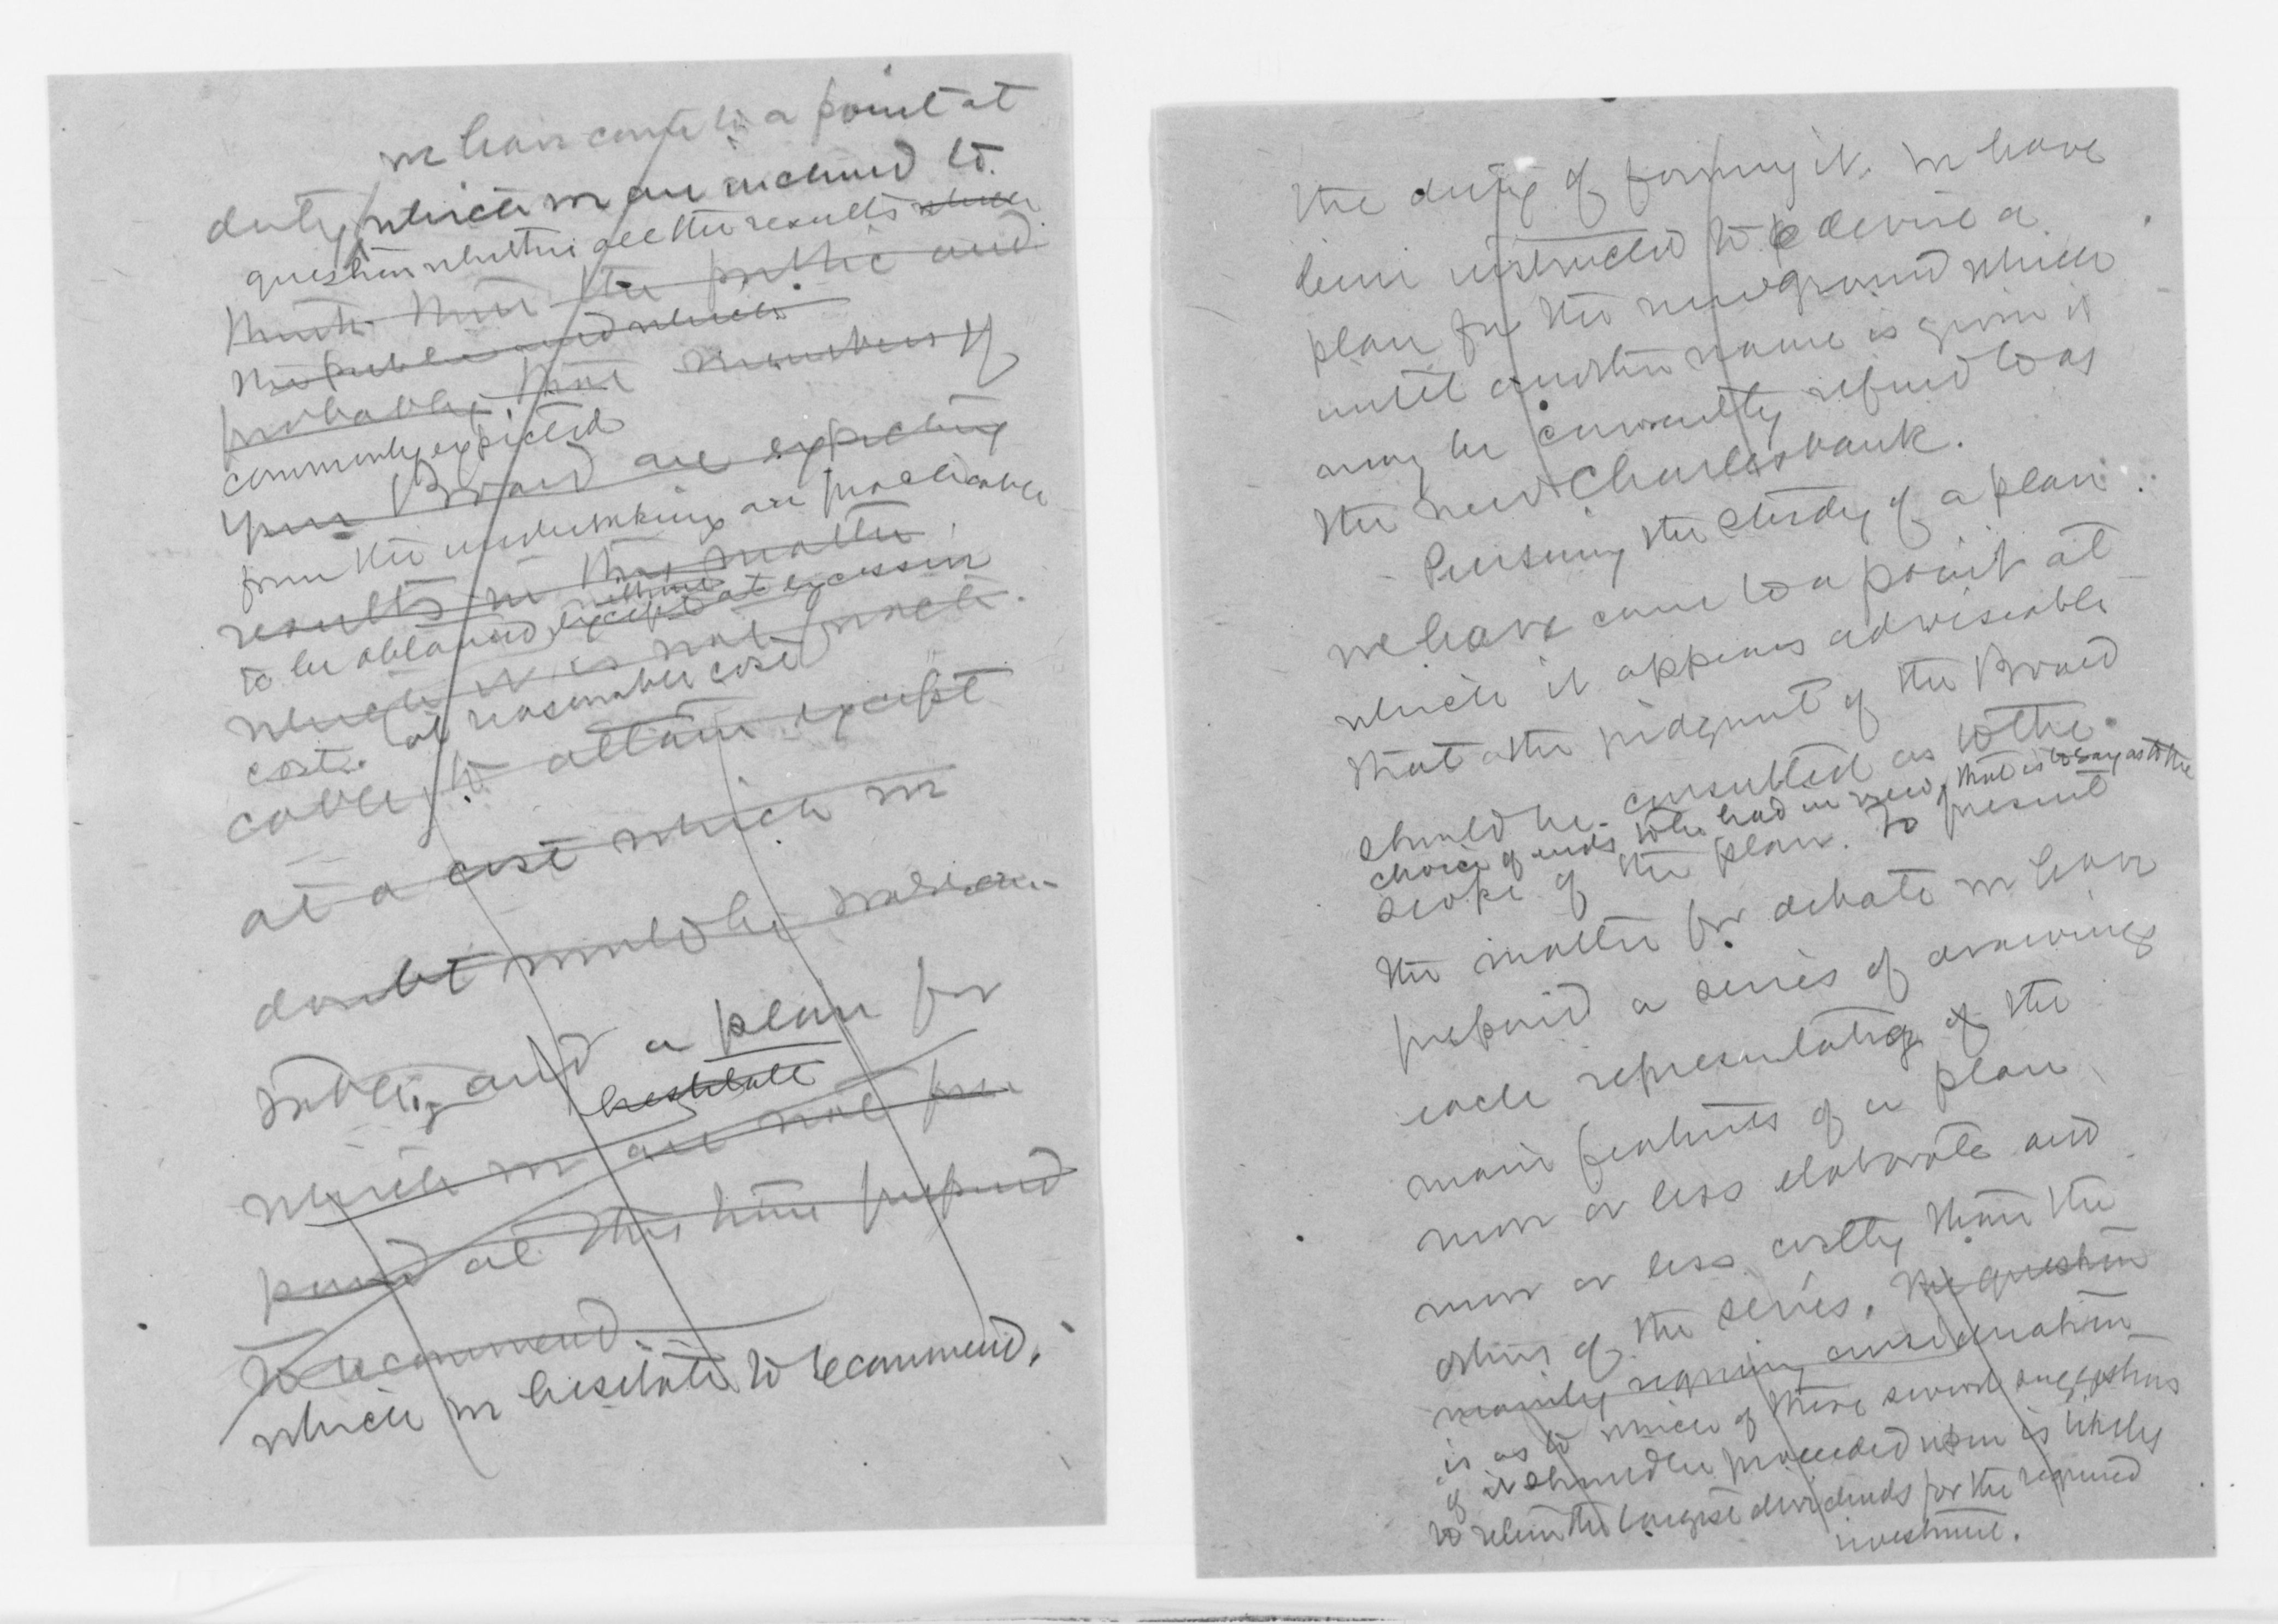 we have come to a point at
duty, which we are inclined to
question whether all the results which
think that the public and
the public and which
probably, that members of
commonly expected
your Board are expecting
from the undertaking are practicable
results in this matter
without
to be obtained, except at excessive
which it is not practi-
cost. at reasonable cost
cable, to attain except
at a cost which we
doubt would be
and a plan for
hesitate
which we are not pre
pared at this time prepared
to recommend.
which we hesitate to recommend.
the duty of forming it. We have
been instructed to devise a
plan for the new ground which
until another name is given it
may be currently referred to as
the new Charlesbank.
Pursuing the study of a plan
we have come to a point at
which it appears adviseable
that the judgment of the Board
should be consulted as to the
choice of ends to be had in view, that is to say as to the
scope of the plan. To present
the matter for debate we have
prepared a series of drawings
each representating of the
main features of a plan
more or less elaborate and
more or less costly than the
others of the series. The question
mainly requiring consideration
is as to which of these several suggestions
if it should be proceeded upon is likely
to return the largest dividends for the required
investment.